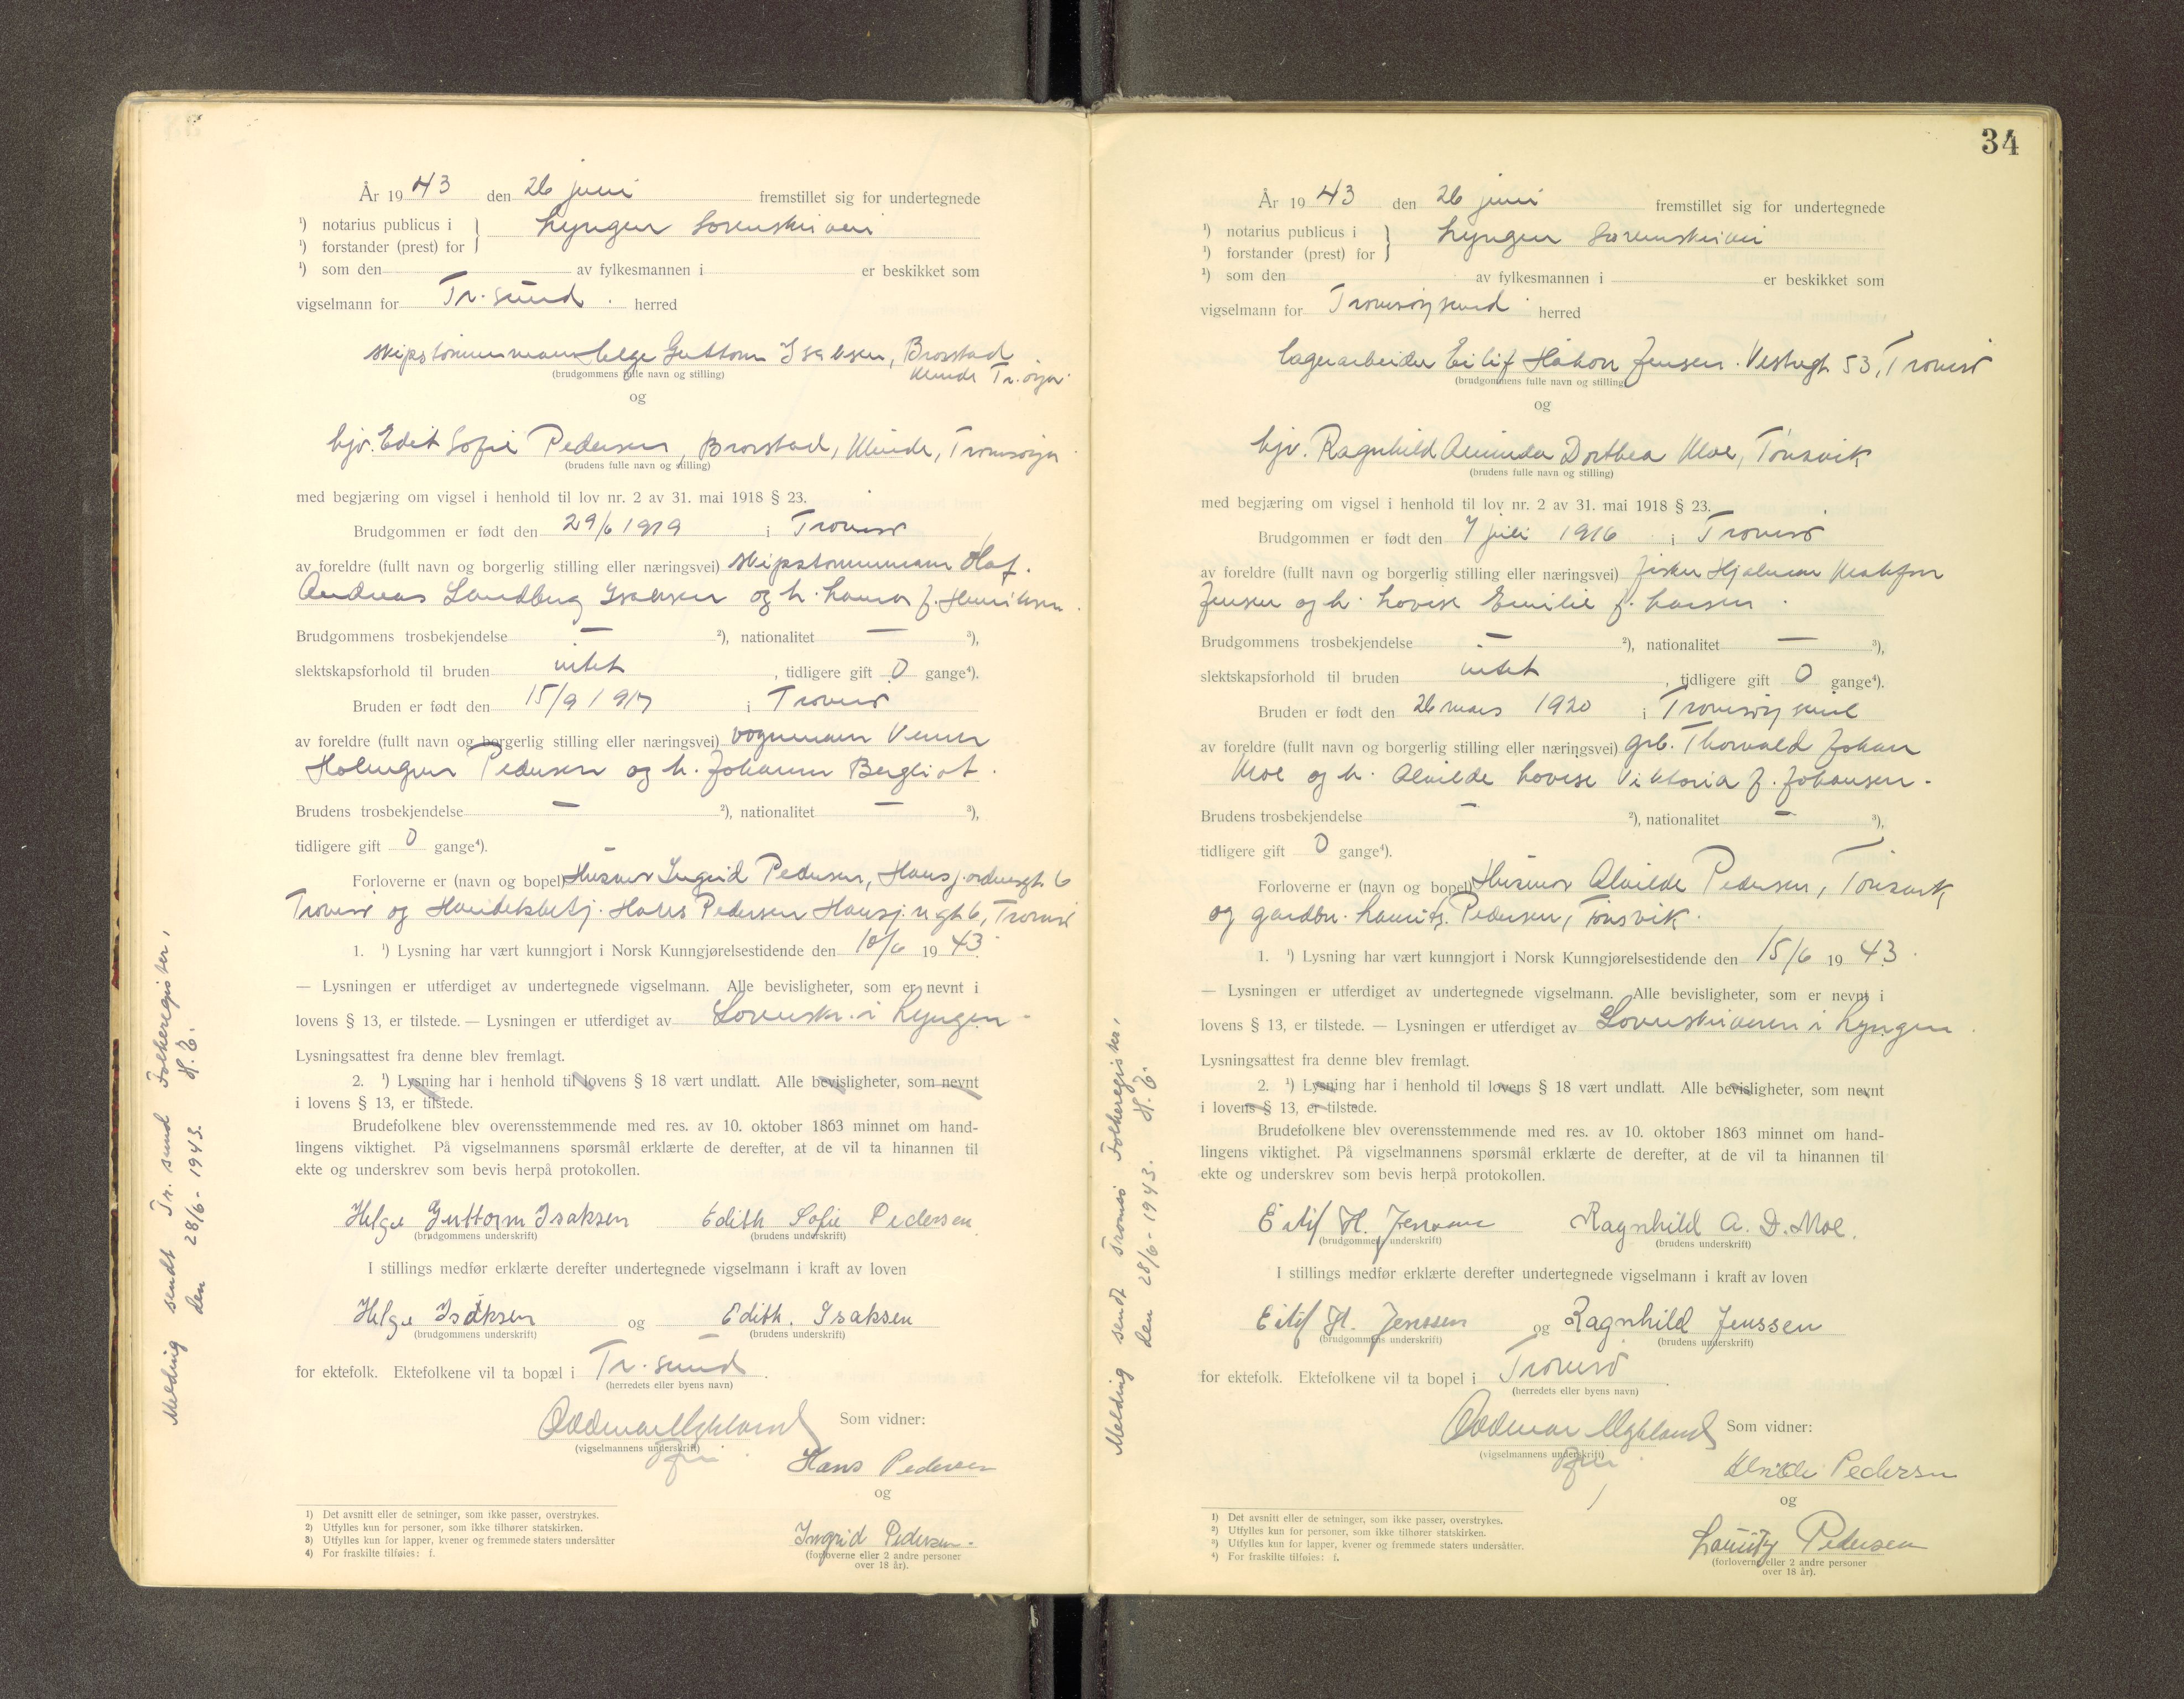 År 1943 den 26 juni fremstillet sig for undertegnede
¹) notarius publicus i } Lyngen Sorenskriveri
¹) forstander (prest) for
¹) som den av fylkesmannen i er beskikket som
vigselmann for Tr. sund. herred
skipstømmermann Helge Guttorm Isaksen, Brorstad
(brudgommens fulle navn og stilling)
Tr.øya
og
hjv. Edit Sofie Pedersen, Brorstad, Tromsøya
(brudens fulle navn og stilling)
med begjæring om vigsel i henhold til lov nr. 2 av 31. mai 1918 § 23.
Brudgommen er født den 29/6 1919 i Tromsø
av foreldre (fullt navn og borgerlig stilling eller næringsvei) skipstømmermann Olaf.
Andreas Sandberg Isaksen og h. Laura f. Henriksen.
Brudgommens trosbekjendelse — ²), nationalitet — ³),
slektskapsforhold til bruden intet, tidligere gift 0 gange⁴).
Bruden er født den 15/9 1917 i Tromsø
av foreldre (fullt navn og borgerlig stilling eller næringsvei) vognmann
Holmgren Pedersen og h. Johanne Bergliot.
Brudens trosbekjendelse — ²), nationalitet — ³),
tidligere gift 0 gange⁴).
Forloverne er (navn og bopel) Husmor Ingrid Pedersen, Hansjordnesgt. 6
Tromsø og Handelsbetj. Hans Pedersen Hansj.n.gt 6, Tromsø
1. ¹) Lysning har vært kunngjort i Norsk Kunngjørelsestidende den 10/6 1943.
— Lysningen er utferdiget av undertegnede vigselmann. Alle bevisligheter, som er nevnt i
lovens § 13, er tilstede. — Lysningen er utferdiget av Sorenskr. i Lyngen
Lysningsattest fra denne blev fremlagt.
2. ¹) Lysning har i henhold til lovens § 18 vært undlatt. Alle bevisligheter, som nevnt
i lovens § 13, er tilstede.
Brudefolkene blev overensstemmende med res. av 10. oktober 1863 minnet om hand-
lingens viktighet. På vigselmannens spørsmål erklærte de derefter, at de vil ta hinannen til
ekte og underskrev som bevis herpå protokollen.
Helge Guttorm Isaksen Edith Sofie Pedersen
(brudgommens underskrift) (brudens underskrift)
I stillings medfør erklærte derefter undertegnede vigselmann i kraft av loven
Helge Isaksen og Edith. Isaksen
(brudgommens underskrift) (brudens underskrift)
for ektefolk. Ektefolkene vil ta bopæl i Tr. sund.
(herredets eller byens navn)
Oddmar Myhland Som vidner:
(vigselmannens underskrift)
Hans Pedersen
og
Ingrid Pedersen.
(forloverne eller 2 andre personer
over 18 år).
1) Det avsnitt eller de setninger, som ikke passer, overstrykes.
2) Utfylles kun for personer, som ikke tilhører statskirken.
3) Utfylles kun for lapper, kvener og fremmede staters undersåtter
4) For fraskilte tilføies: f.
Melding sendt Tr. sund Folkeregister,
den 28/6-1943. H.E.
34
År 1943 den 26 juni fremstillet sig for undertegnede
¹) notarius publicus i } Lyngen Sorenskriveri
¹) forstander (prest) for
¹) som den av fylkesmannen i er beskikket som
vigselmann for Tromsøysund herred
lagerarbeider Eilif Håkon Jensen. Vestregt. 53, Tromsø
(brudgommens fulle navn og stilling)
og
hjv. Ragnhild Aminda Dorthea Moe, Tønsvik
(brudens fulle navn og stilling)
med begjæring om vigsel i henhold til lov nr. 2 av 31. mai 1918 § 23.
Brudgommen er født den 7 juli 1916 i Tromsø
av foreldre (fullt navn og borgerlig stilling eller næringsvei) fisker Hjalmar
Jensen og h. Lovise Emilie f. Larsen.
Brudgommens trosbekjendelse — ²), nationalitet — ³),
slektskapsforhold til bruden intet, tidligere gift 0 gange⁴).
Bruden er født den 26 mars 1920 i Tromsøysund
av foreldre (fullt navn og borgerlig stilling eller næringsvei) grb. Thorvald Johan
Moe og h. Alvilde Lovise Viktoria f. Johansen.
Brudens trosbekjendelse — ²), nationalitet — ³),
tidligere gift 0 gange⁴).
Forloverne er (navn og bopel) Husmor Alvilde Pedersen, Tønsvik
og gardbr. Lauritz Pedersen, Tønsvik.
1. ¹) Lysning har vært kunngjort i Norsk Kunngjørelsestidende den 15/6 1943.
— Lysningen er utferdiget av undertegnede vigselmann. Alle bevisligheter, som er nevnt i
lovens § 13, er tilstede. — Lysningen er utferdiget av Sorenskriveren i Lyngen.
Lysningsattest fra denne blev fremlagt.
2. ¹) Lysning har i henhold til lovens § 18 vært undlatt. Alle bevisligheter, som nevnt
i lovens § 13, er tilstede.
Brudefolkene blev overensstemmende med res. av 10. oktober 1863 minnet om hand-
lingens viktighet. På vigselmannens spørsmål erklærte de derefter, at de vil ta hinannen til
ekte og underskrev som bevis herpå protokollen.
Eilif H. Jenssen Ragnhild A. D. Moe.
(brudgommens underskrift) (brudens underskrift)
I stillings medfør erklærte derefter undertegnede vigselmann i kraft av loven
Eilif H. Jenssen og Ragnhild Jenssen
(brudgommens underskrift) (brudens underskrift)
for ektefolk. Ektefolkene vil ta bopel i Tromsø
(herredets eller byens navn)
Oddmar Myhland Som vidner:
(vigselmannens underskrift)
Alvilde Pedersen
og
Lauritz Pedersen
(forloverne eller 2 andre personer
over 18 år).
1) Det avsnitt eller de setninger, som ikke passer, overstrykes.
2) Utfylles kun for personer, som ikke tilhører statskirken.
3) Utfylles kun for lapper, kvener og fremmede staters undersåtter.
4) For fraskilte tilføies: f.
Melding sendt Tromsø Folkeregister,
den 28/6-1943. H.E.